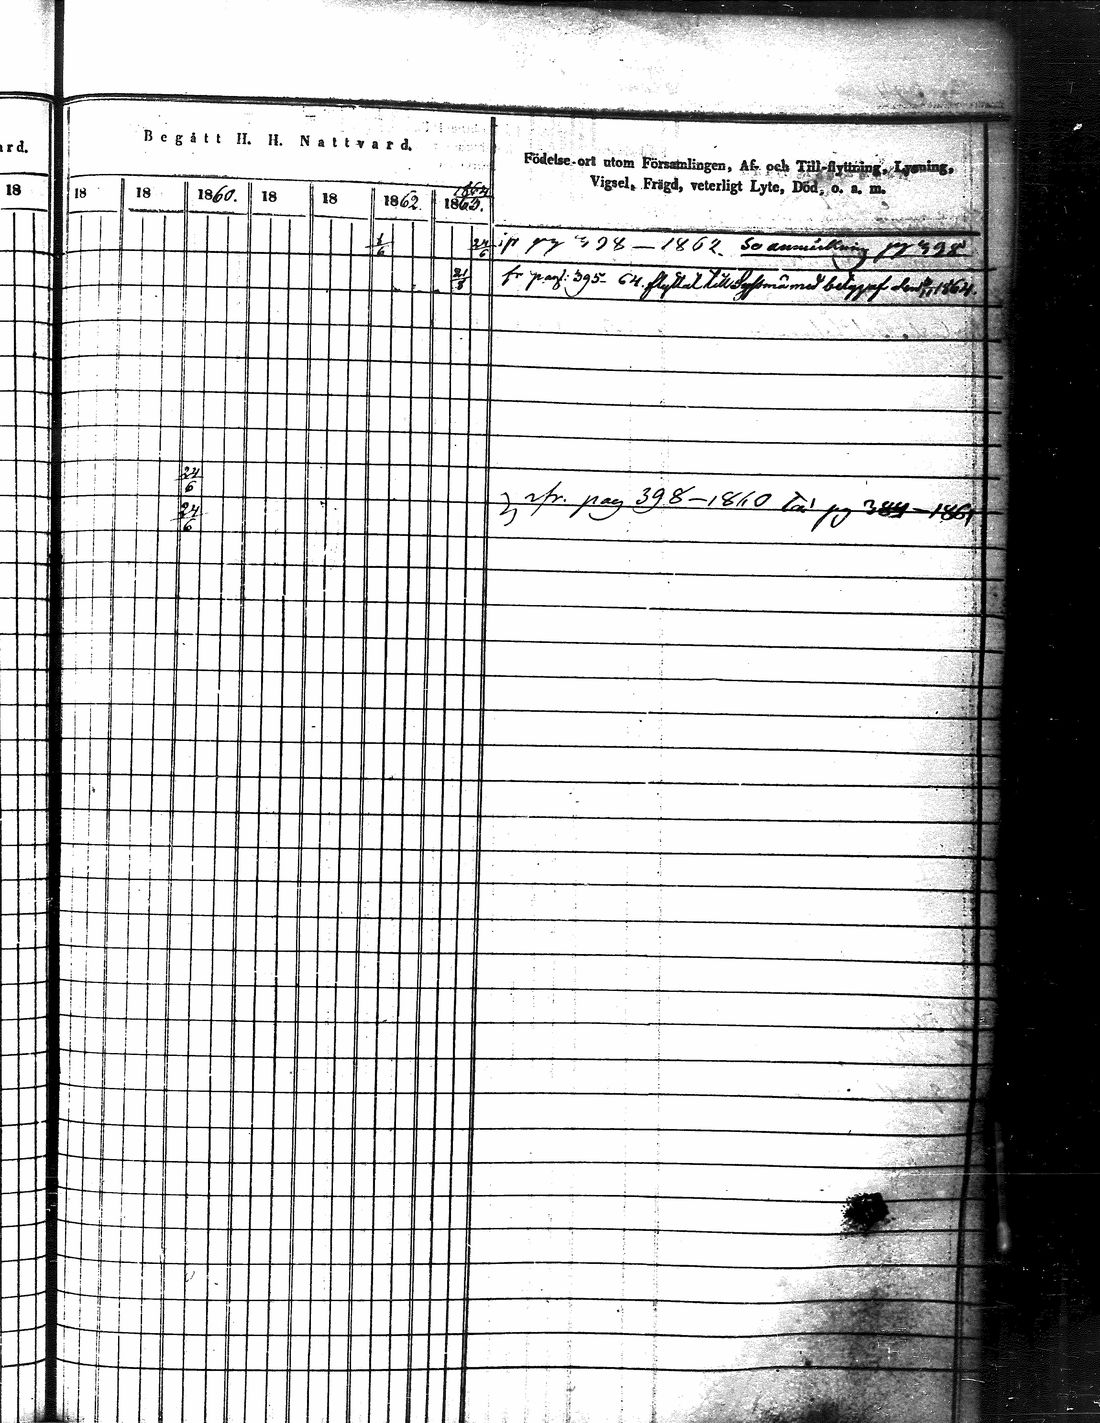 rd.
18
Begått H. H. Nattvard.
18 18 1860. 18 18 1862. 1863. 1864
Födelse-ort utom Församlingen, Af- och Till-flyttning, Lysning,
Vigsel, Frägd, veterligt Lyte, Död, o. a. m.
1/6 24/6 pag 398 — 1862. Se anmärkning pag 398
21/8 fr pag: 395 64. flyttat till med betyg af den 1864.
24/6
24/6 fr. pag 398 — 1860 pag 384 — 1861